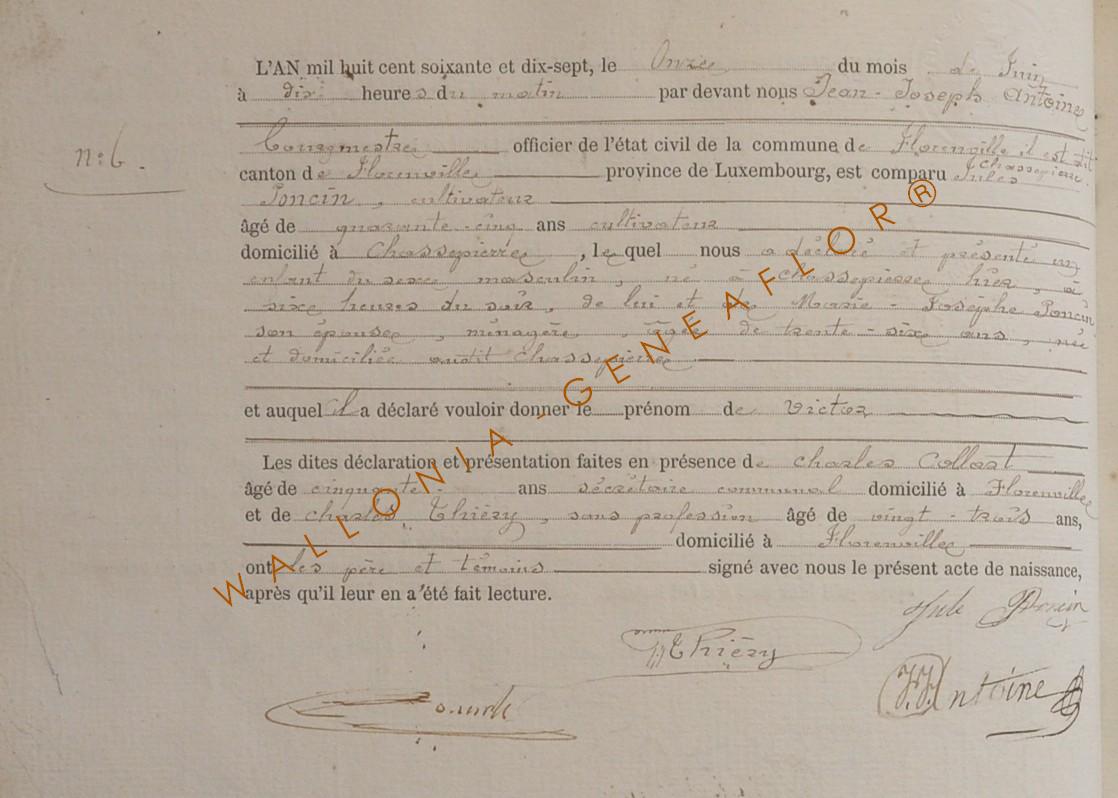 L'AN mil huit cent soixante et dix-sept, le Onze du mois de Juin
à dix heures du matin par devant nous Jean-Joseph Antoine
n: 6.
Bourgmestre officier de l'état civil de la commune de Florenville
Chassepierre.
canton de Florenville province de Luxembourg, est comparu Jules
Poncin, cultivateur
âgé de quarante-cinq ans cultivateur
domicilié à Chassepierre, lequel nous a déclaré et présenté un
enfant du sexe masculin, né à Chassepierre hier, à
sixe heures du soir, de lui et de Marie-Josèphe Poncin
son épouse, ménagère, âgée de trente-sixe ans, née
et domiciliée audit Chassepierre
et auquel il a déclaré vouloir donner le prénom de Victor
Les dites déclaration et présentation faites en présence de Charles
âgé de cinquante ans sécrétaire communal domicilié à Florenville
et de Charles Thiéry, sans profession âgé de vingt-trois ans,
domicilié à Florenville
ont les père et témoins signé avec nous le présent acte de naissance,
après qu'il leur en a été fait lecture.
Jule Poncin
Thiéry
J.J. Antoine
WALLONIA-GENEAFLOR®